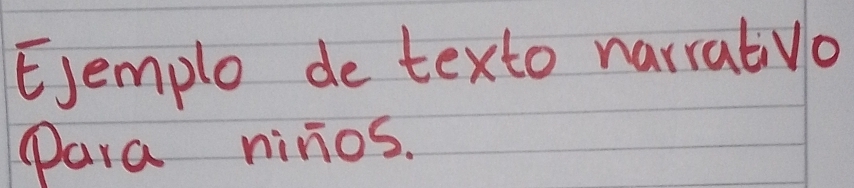 Ejemplo de texto narrativo
Para niños.